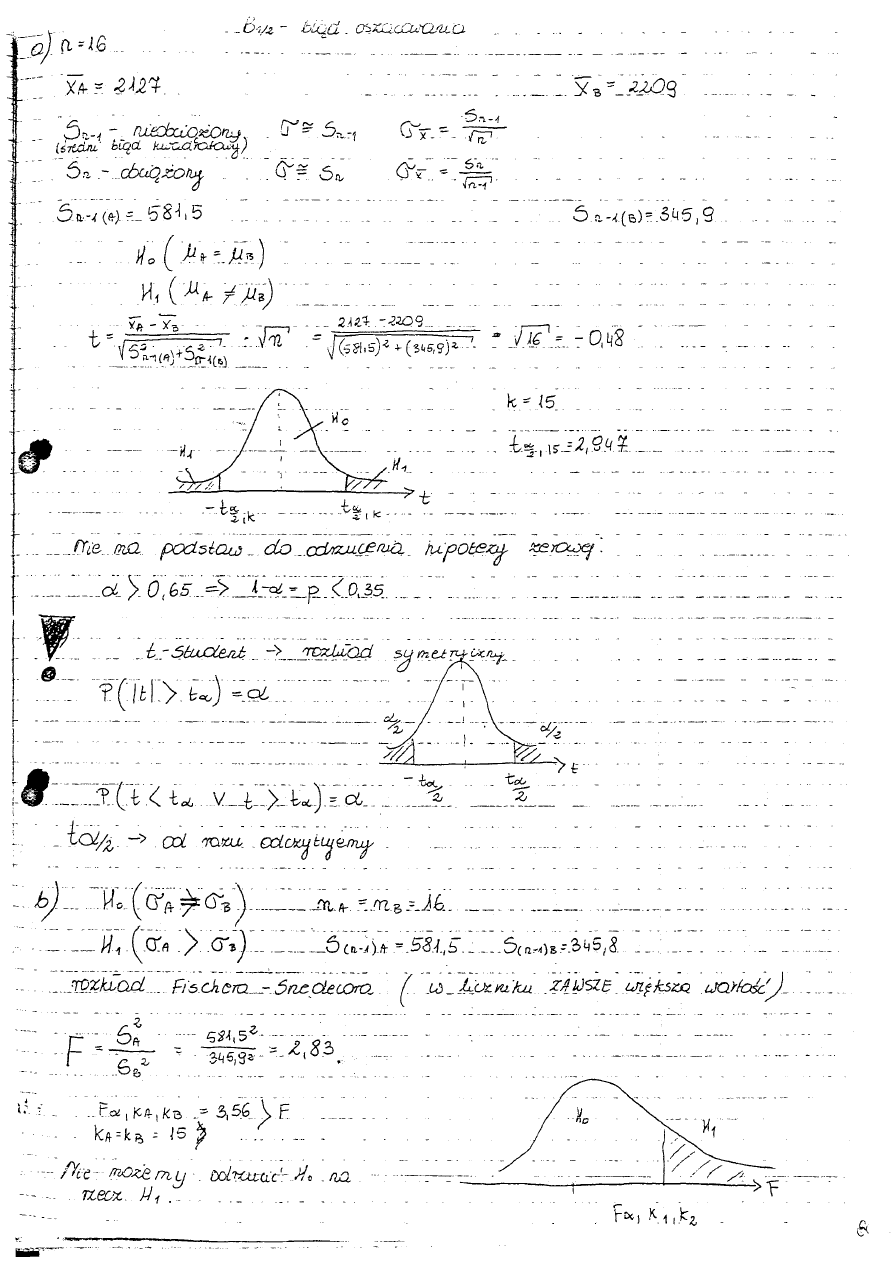 B1/2 - błąd oszacowania
a) n=16
X̄A = 2127 X̄B = 2209
Sn-1 - nieobciążony σ ≅ Sn-1 σx̄ = Sn-1/√n
(średni błąd kwadratowy)
Sn - obciążony σ ≅ Sn σx̄ = Sn/√n-1
Sn-1(A) = 581,5 Sn-1(B) = 345,9
H0 ( μA = μB )
H1 ( μA ≠ μB )
t = (X̄A - X̄B)/√(S²n-1(A) + S²n-1(B)) · √n = (2127 - 2209)/√((581,5)² + (345,9)²) = √16 = -0,48
k = 15
H0
tα/2, 15 = 2,947
H1 H1
-tα/2,k tα/2,k t
Nie ma podstaw do odrzucenia hipotezy zerowej.
α > 0,65 => 1-α = p < 0,35
t-Student → rozkład symetryczny
P(|t| > tα) = α
α/2 α/2
-tα/2 tα/2 t
P(t < tα ∨ t > tα) = α
tα/2 → od razu odczytujemy
b) H0 (σA = σB) nA = nB = 16
H1 (σA > σB) S(n-1)A = 581,5 S(n-1)B = 345,8
rozkład Fischera-Snedecora ( w liczniku ZAWSZE większa wartość)
F = SA²/SB² = 581,5²/345,9² = 2,83.
Fα, kA, kB = 3,56 > F
kA=kB = 15
H0 H1
Nie możemy odrzucić H0 na
rzecz H1.
F
Fα, k1, k2